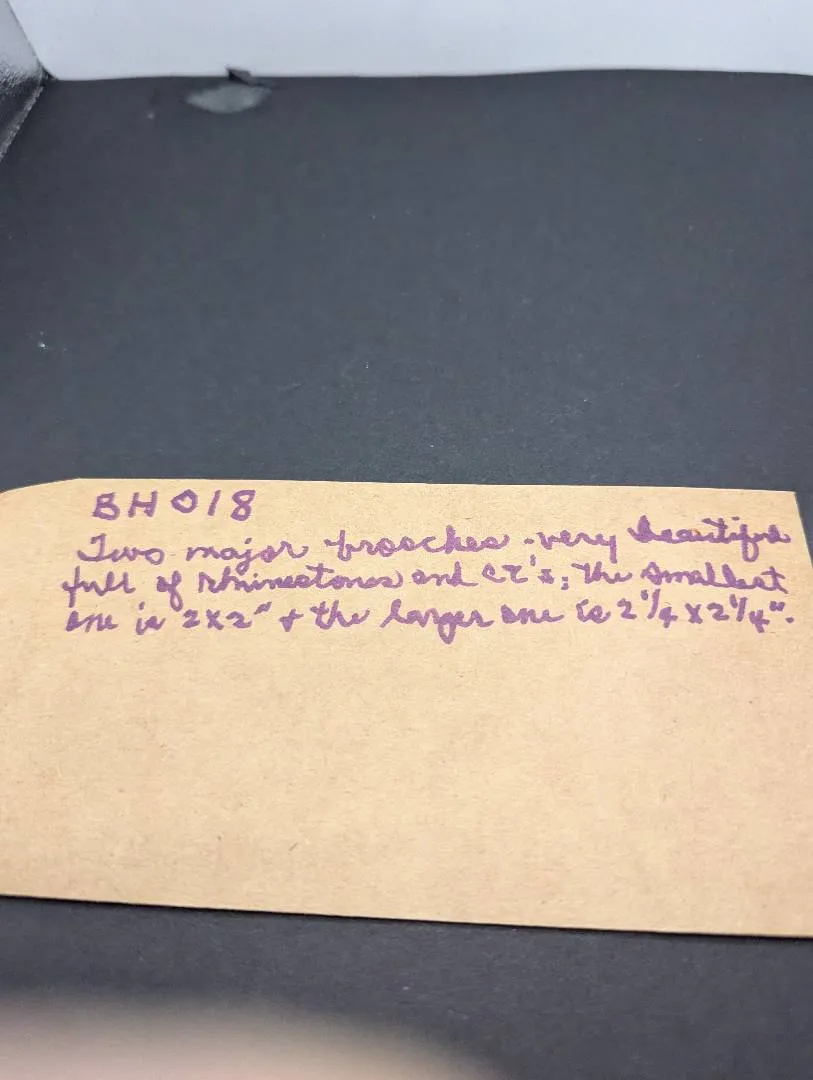 BH018
Two major brooches - very beautiful
full of rhinestones and CZ's; the smallest
one is 2x2" + the larger one is 2 1/4 x 2 1/4".